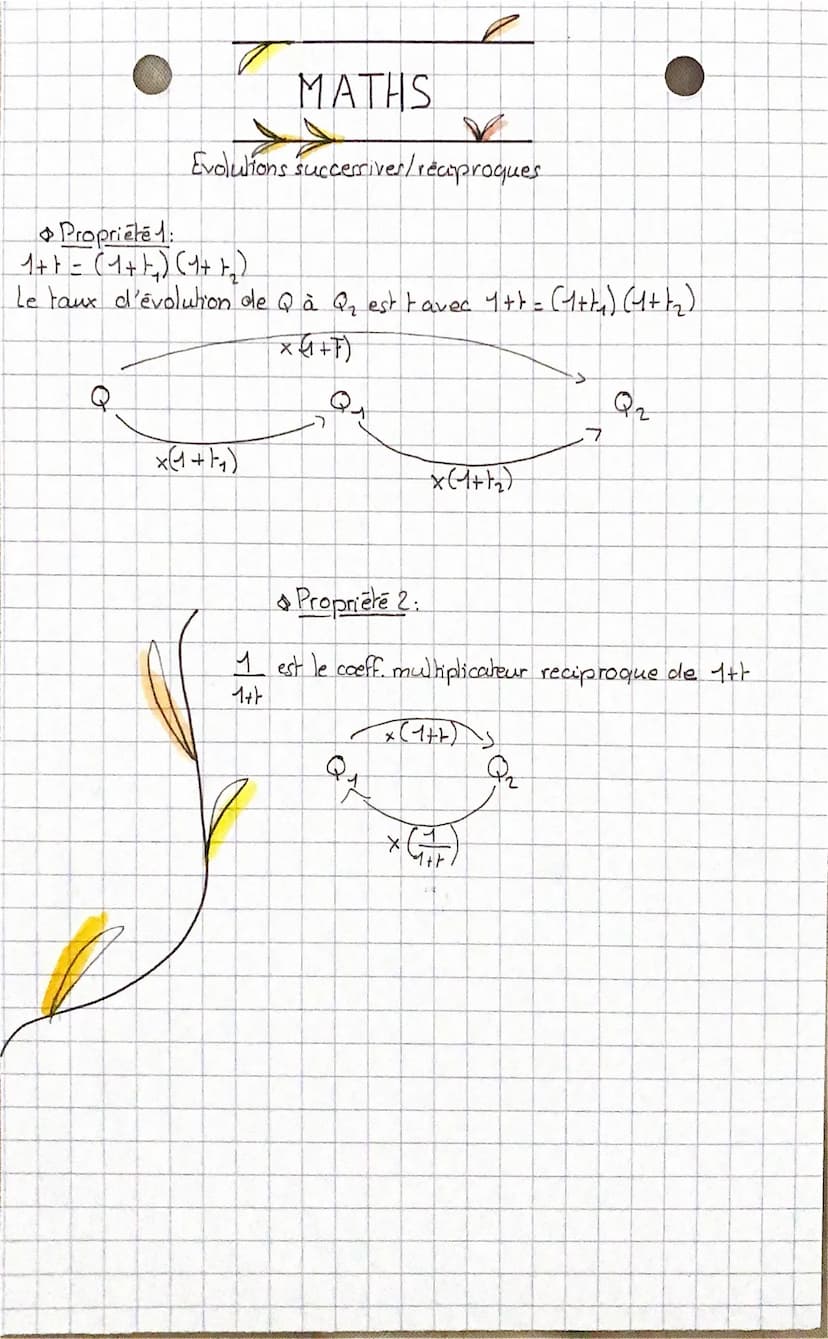 MATHS
Evolutions successives/réciproques
Propriété 1:
1+t = (1+t₁)(1+t₂)
Le taux d'évolution de Q à Q₂ est t avec 1+t = (1+t₁)(1+t₂)
×(1+T)
Q Q₁ Q₂
×(1+t₁)
×(1+t₂)
Propriété 2:
1/1+t est le coeff. multiplicateur reciproque de 1+t
×(1+t)
Q₁ Q₂
×(1/1+t)